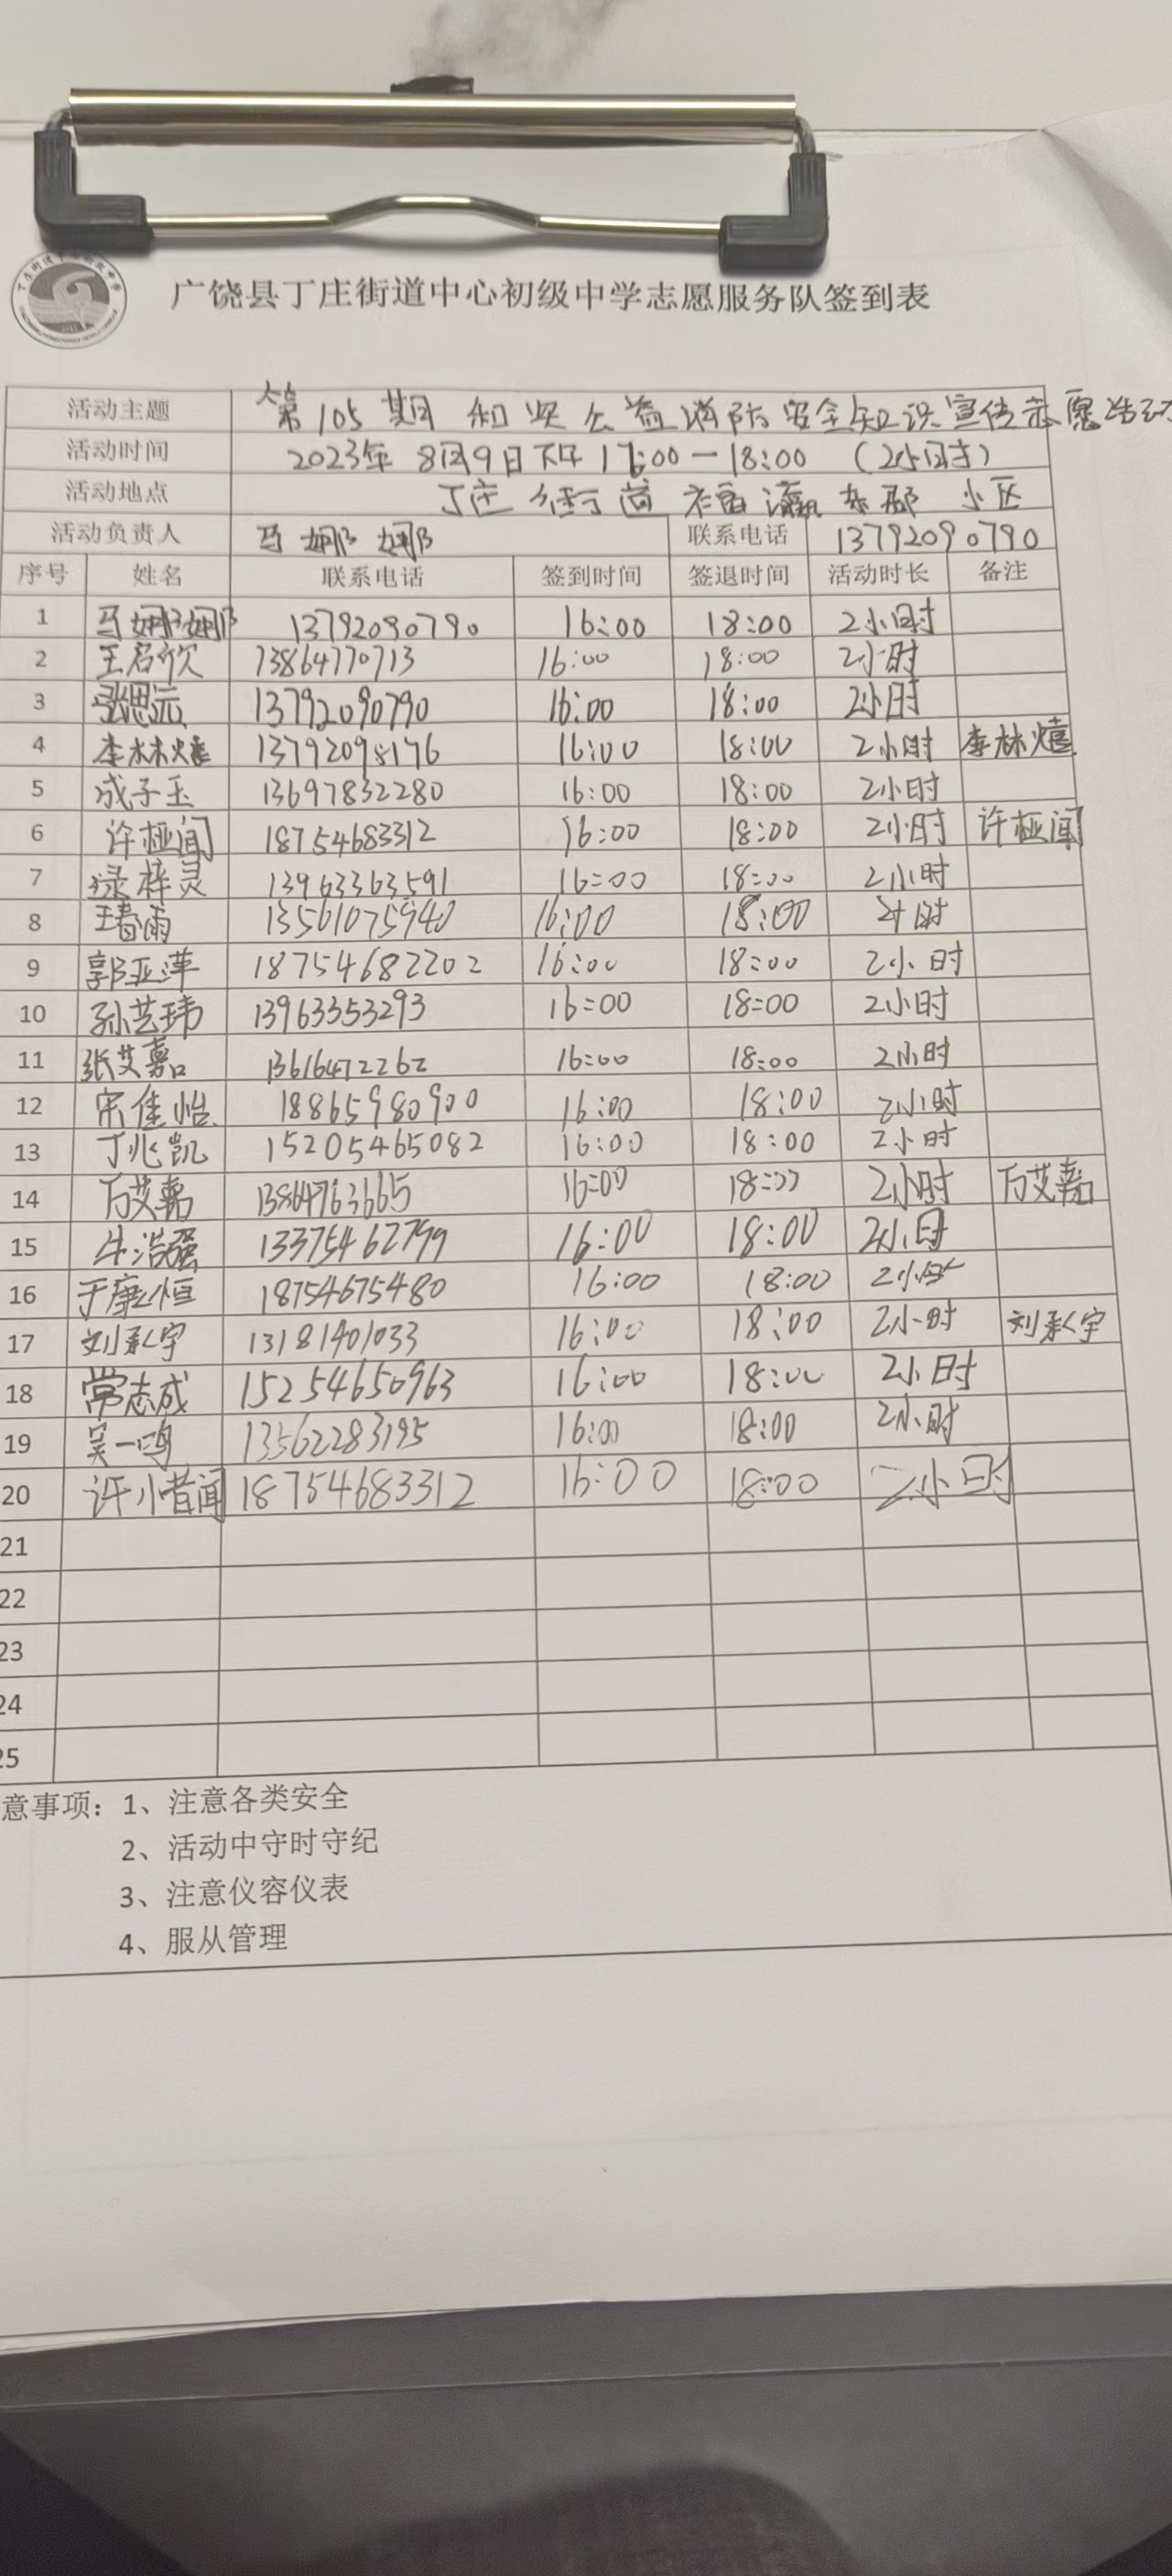 广饶县丁庄街道中心初级中学志愿服务队签到表
活动主题 第105期 和安公益消防安全知识宣传志愿活动
活动时间 2023年 8月9日下午 17:00—18:00 (2小时)
活动地点 丁庄街道 小区
活动负责人 马娜娜 联系电话 13792090790
序号 姓名 联系电话 签到时间 签退时间 活动时长 备注
1 马娜娜 13792090790 16:00 18:00 2小时
2 王名欣 13864770713 16:00 18:00 2小时
3 张思远 13792090790 16:00 18:00 2小时
4 李林熺 13792098176 16:00 18:00 2小时 李林熺
5 成子玉 13697832280 16:00 18:00 2小时
6 许桠闻 18754683312 16:00 18:00 2小时 许桠闻
7 梓灵 13963363591 16:00 18:00 2小时
8 王春雨 13561075940 16:00 18:00 2小时
9 郭亚萍 18754682202 16:00 18:00 2小时
10 孙艺玮 13963353293 16:00 18:00 2小时
11 张艾嘉 13616472262 16:00 18:00 2小时
12 宋佳怡 18865980900 16:00 18:00 2小时
13 丁兆凯 15205465082 16:00 18:00 2小时
14 万艾嘉 13864763665 16:00 18:00 2小时 万艾嘉
15 牛浩强 13375462799 16:00 18:00 2小时
16 于康恒 18754675480 16:00 18:00 2小时
17 刘承宇 13181401033 16:00 18:00 2小时 刘承宇
18 常志成 15254650963 16:00 18:00 2小时
19 吴一鸣 13562283195 16:00 18:00 2小时
20 许小昔闻 18754683312 16:00 18:00 2小时
21
22
23
24
25
意事项：1、注意各类安全
2、活动中守时守纪
3、注意仪容仪表
4、服从管理